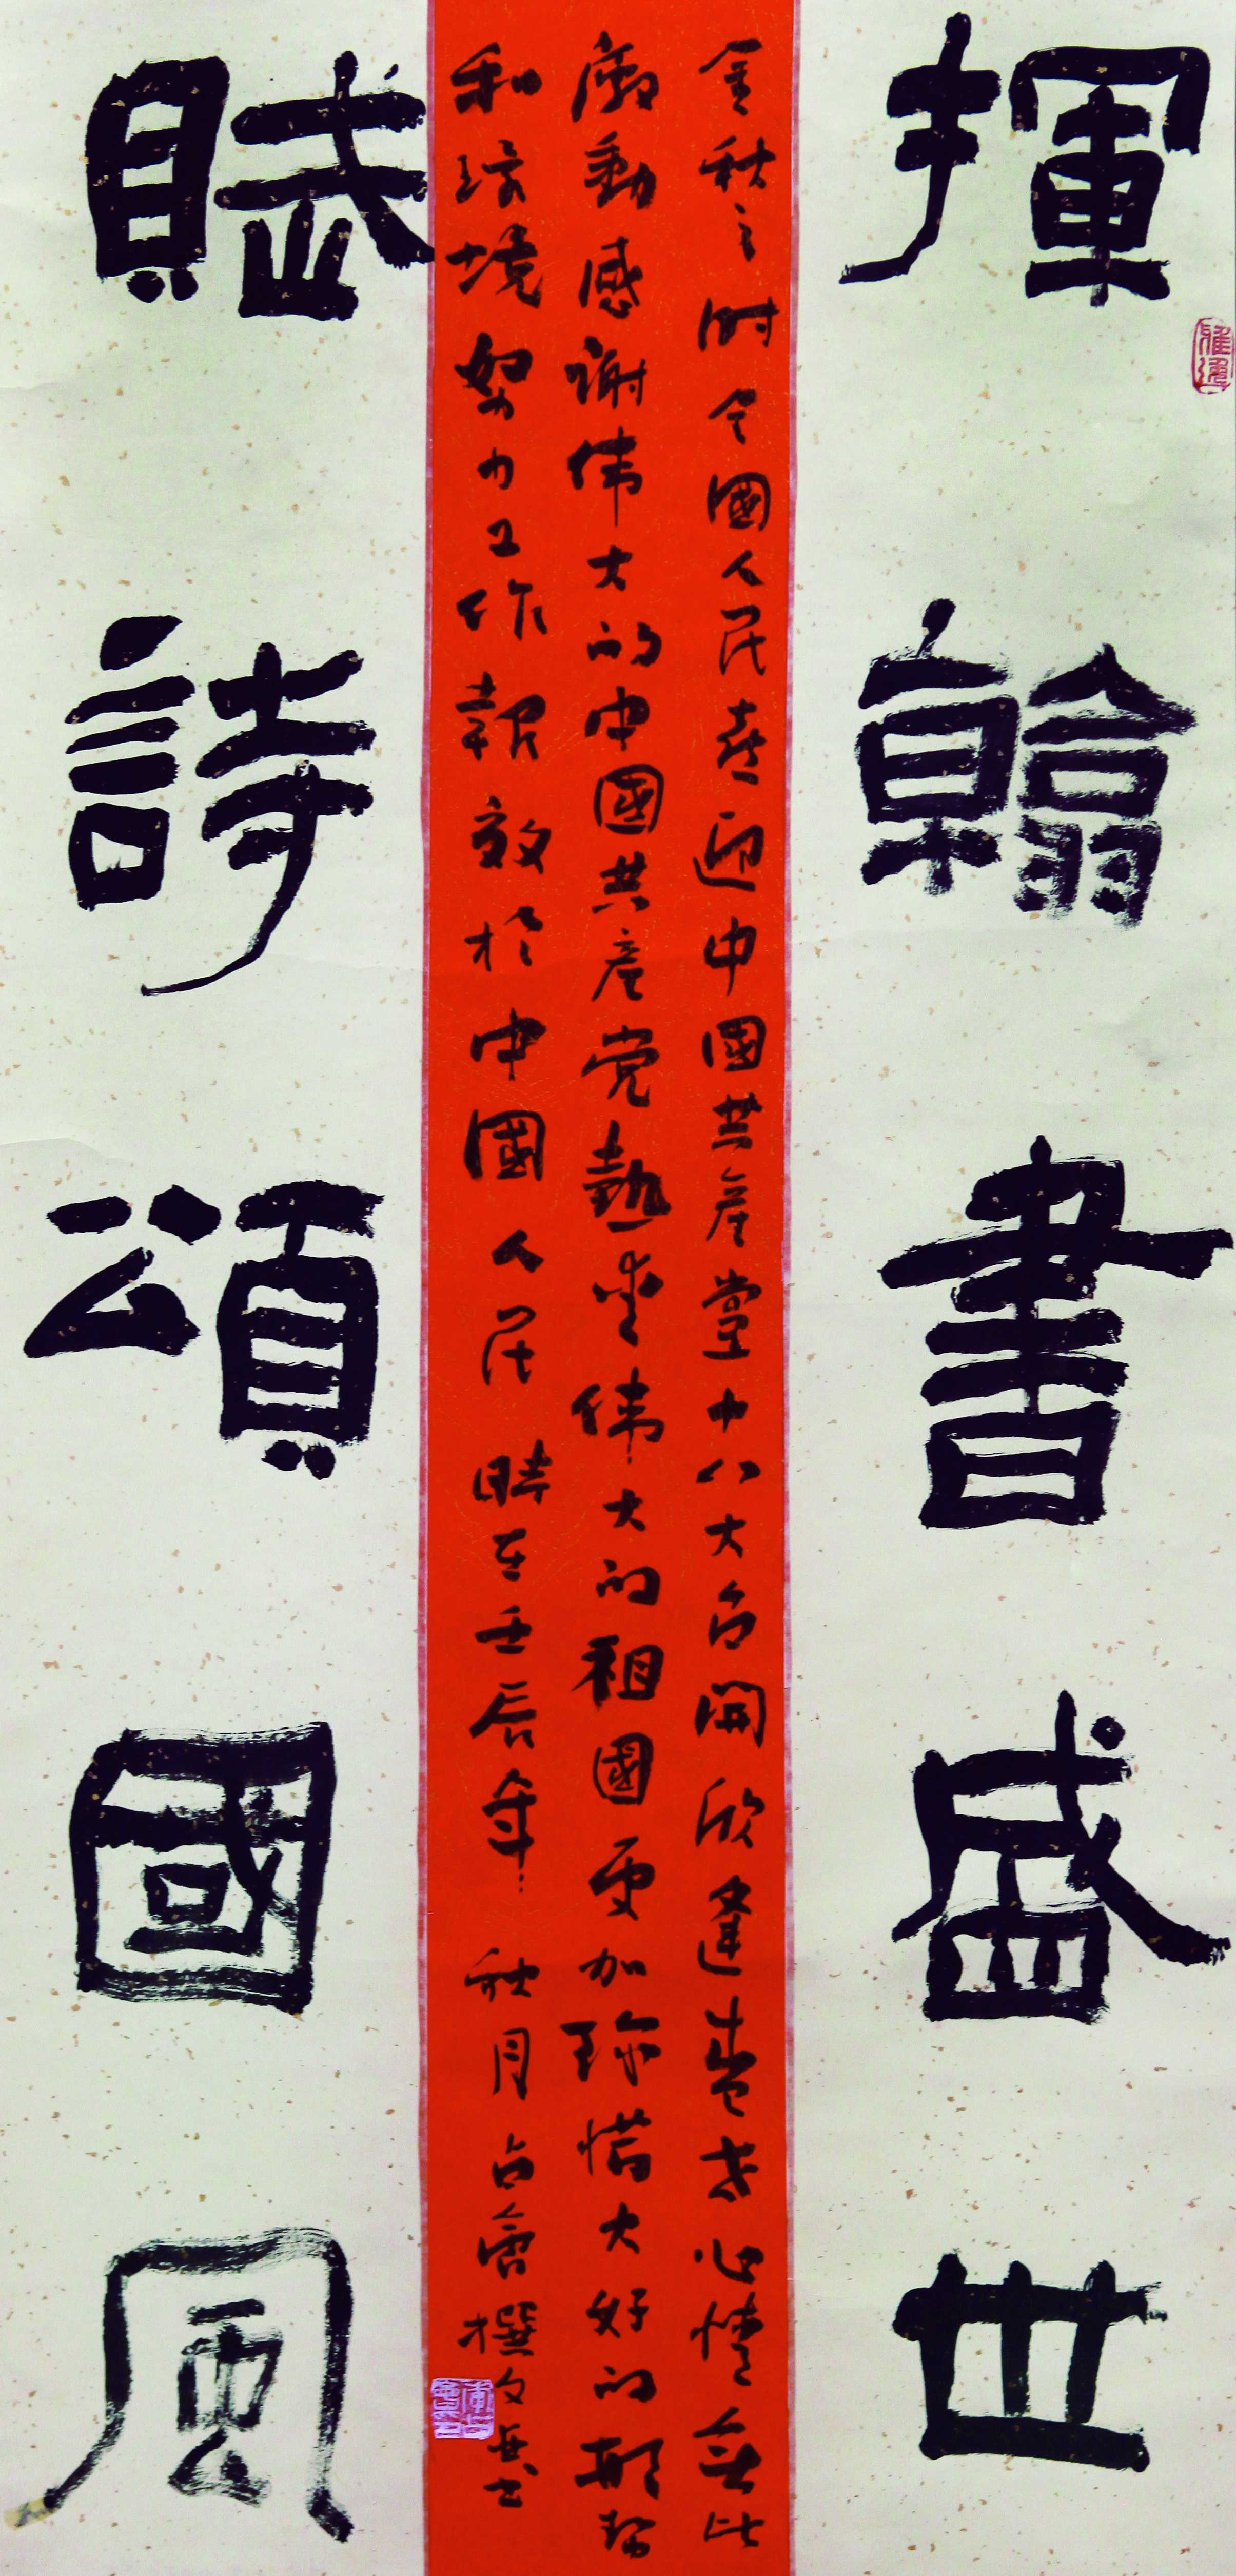 揮翰書盛世
金秋之时全國人民喜迎中國共產堂十八大召開欣逢盛世心情無比
激動感谢伟大的中國共產党熱爱伟大的祖國更加珍惜大好的形势
和环境努力工作報效於中國人民 時在壬辰年 秋月 撰文并书
賦詩頌國風